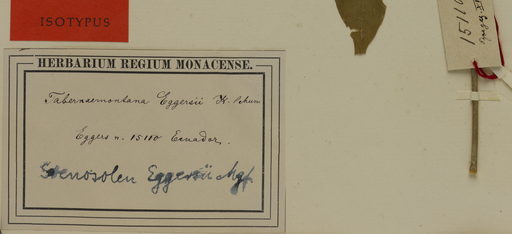 ISOTYPUS
HERBARIUM REGIUM MONACENSE.
Tabernaemontana Eggersii K. Schum
Eggers n. 15110 Ecuador.
Stenosolen Eggersii Mgf.
15110